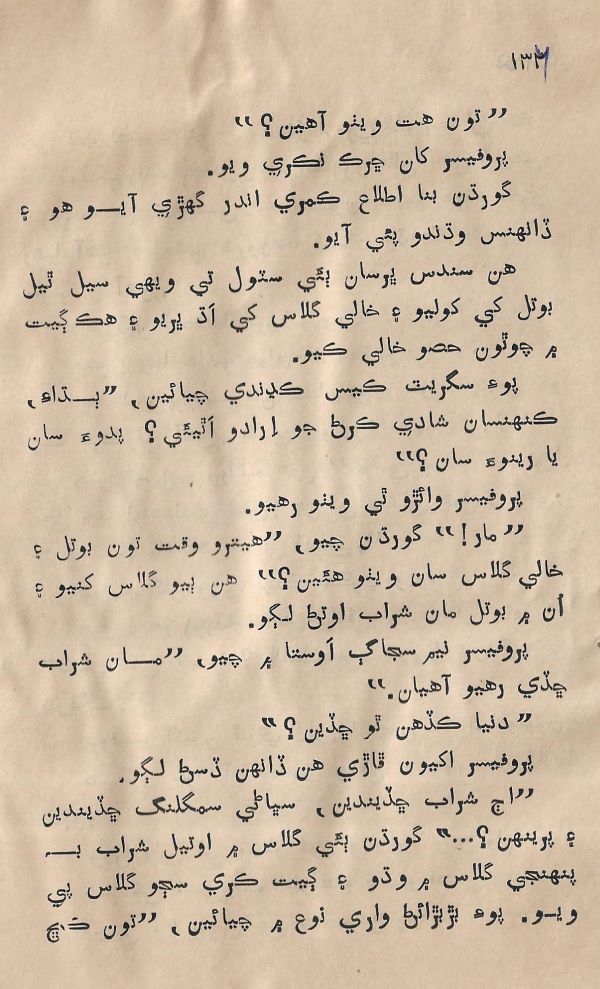 ۱۳۲
”تون هت ويٺو آهين؟“
پروفيسر کان ڇرڪ نڪري ويو.
گورڌن بنا اطلاع ڪمري اندر گهڙي آيو هو ۽
ڏانهنس وڌندو پئي آيو.
هن سندس ڀرسان ٻئي سٽول تي ويهي سيل ٿيل
بوتل کي کوليو ۽ خالي گلاس کي اَڌ ڀريو ۽ هڪ ڳيت
۾ چوٿون حصو خالي ڪيو.
پوءِ سگريٽ ڪيس ڪڍندي چيائين، ”ٻڌاءِ،
ڪنهنسان شادي ڪرڻ جو اِرادو اَٿيئي؟ پدوءَ سان
يا رينوءَ سان؟“
پروفيسر وائڙو ٿي ويٺو رهيو.
”مار!“ گورڌن چيو، ”هيترو وقت تون بوتل ۽
خالي گلاس سان ويٺو هئين؟“ هن ٻيو گلاس کنيو ۽
اُن ۾ بوتل مان شراب اوتڻ لڳو.
پروفيسر نيم سجاڳ اَوستا ۾ چيو، ”مان شراب
ڇڏي رهيو آهيان.“
”دنيا ڪڏهن ٿو ڇڏين؟“
پروفيسر اکيون ڦاڙي هن ڏانهن ڏسڻ لڳو.
”اڄ شراب ڇڏيندين، سڀاڻي سمگلنگ ڇڏيندين
۽ پرينهن؟...“ گورڌن ٻئي گلاس ۾ اوتيل شراب بہ
پنهنجي گلاس ۾ وڌو ۽ ڳيت ڪري سڄو گلاس پي
ويو. پوءِ بڙبڙائڻ واري نوع ۾ چيائين، ”تون ڪَڃ